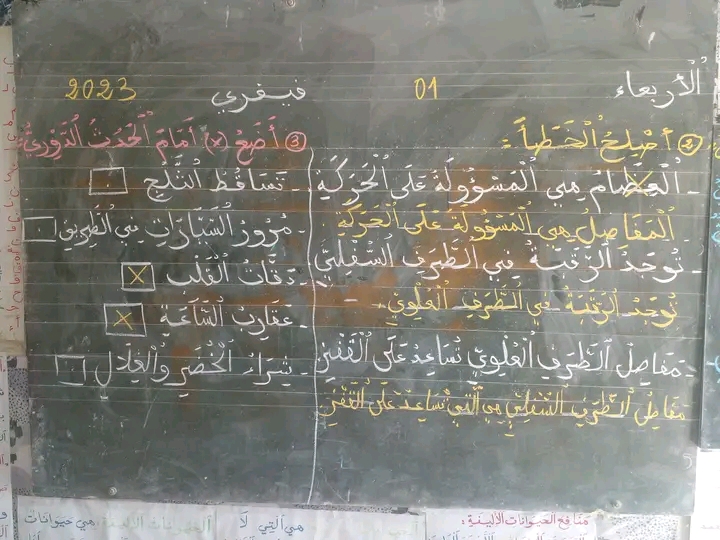 الْأربعاء 01 فيفري 2023
② أصْلِحُ الْخَطَأَ :
- الْعِظَامُ هِيَ الْمَسْؤُولَةُ عَلَى الْحَرَكَةِ
الْمَفَاصِلُ هِيَ الْمَسْؤُولَةُ عَلَى الْحَرَكَةِ
- تُوجَدُ الرَّقَبَةُ فِي الطَّرَفِ السُّفْلِيِّ
تُوجَدُ الرَّقَبَةُ فِي الطَّرَفِ الْعُلْوِيِّ
- مَفَاصِلُ الطَّرَفِ الْعُلْوِيِّ تُسَاعِدُ عَلَى الْقَفْزِ
مَفَاصِلُ الطَّرَفِ السُّفْلِيِّ هِيَ الَّتِي تُسَاعِدُ عَلَى الْقَفْزِ
③ أَضَعُ (x) أَمَامَ الْحَدَثِ الدَّوْرِيِّ:
- تَسَاقُطُ الثَّلْجِ
- مُرُورُ السَّيَّارَاتِ فِي الطَّرِيقِ
- دَقَّاتُ الْقَلْبِ x
- عَقَارِبُ السَّاعَةِ x
- شِرَاءُ الْخُضَرِ وَالْغِلَالِ
مَنَافِعُ الْحَيَوَانَاتِ الْأَلِيفَةِ:
هِيَ الَّتِي لَا
هِيَ حَيَوَانَات